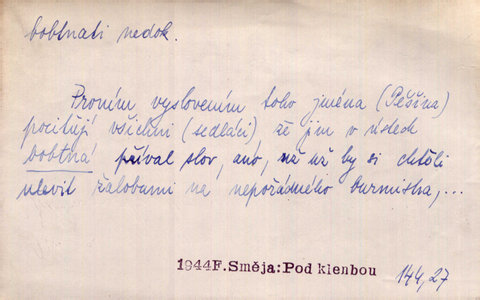 bobtnati nedok.
Prvním vyslovením toho jména (Pěšina)
pociťují všichni (sedláci) až jim v ústech
bobtná příval slov, ano, už už by si chtěli
ulevit žalobami na nepořádného burmistra,...
1944F.Směja:Pod klenbou
144,27